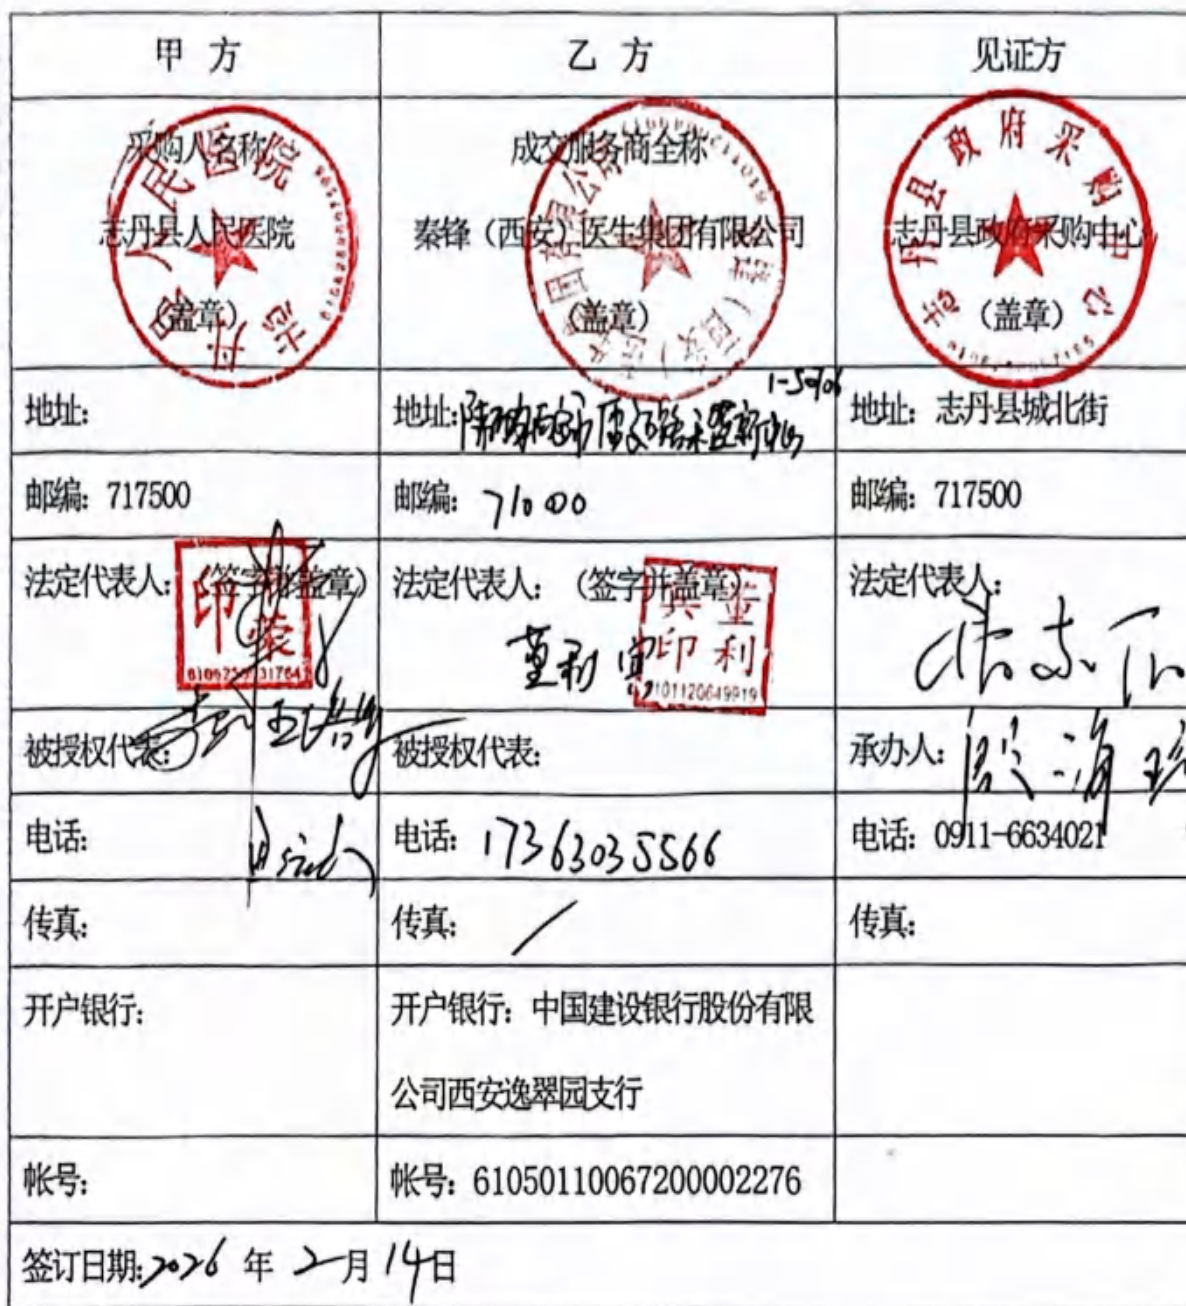 甲方 乙方 见证方
采购人名称 成交服务商全称
志丹县人民医院 秦锋（西安）医生集团有限公司 志丹县政府采购中心
（盖章） （盖章） （盖章）
志丹县人民医院
志丹县政府采购中心
1-50106
地址： 地址： 地址：志丹县城北街
邮编：717500 邮编：710000 邮编：717500
法定代表人：（签字并盖章） 法定代表人：（签字并盖章） 法定代表人：
被授权代表： 被授权代表： 承办人：
电话： 电话：17363035566 电话：0911-6634021
传真： 传真：/ 传真：
开户银行： 开户银行：中国建设银行股份有限
公司西安逸翠园支行
帐号： 帐号：61050110067200002276
签订日期：2026年2月14日